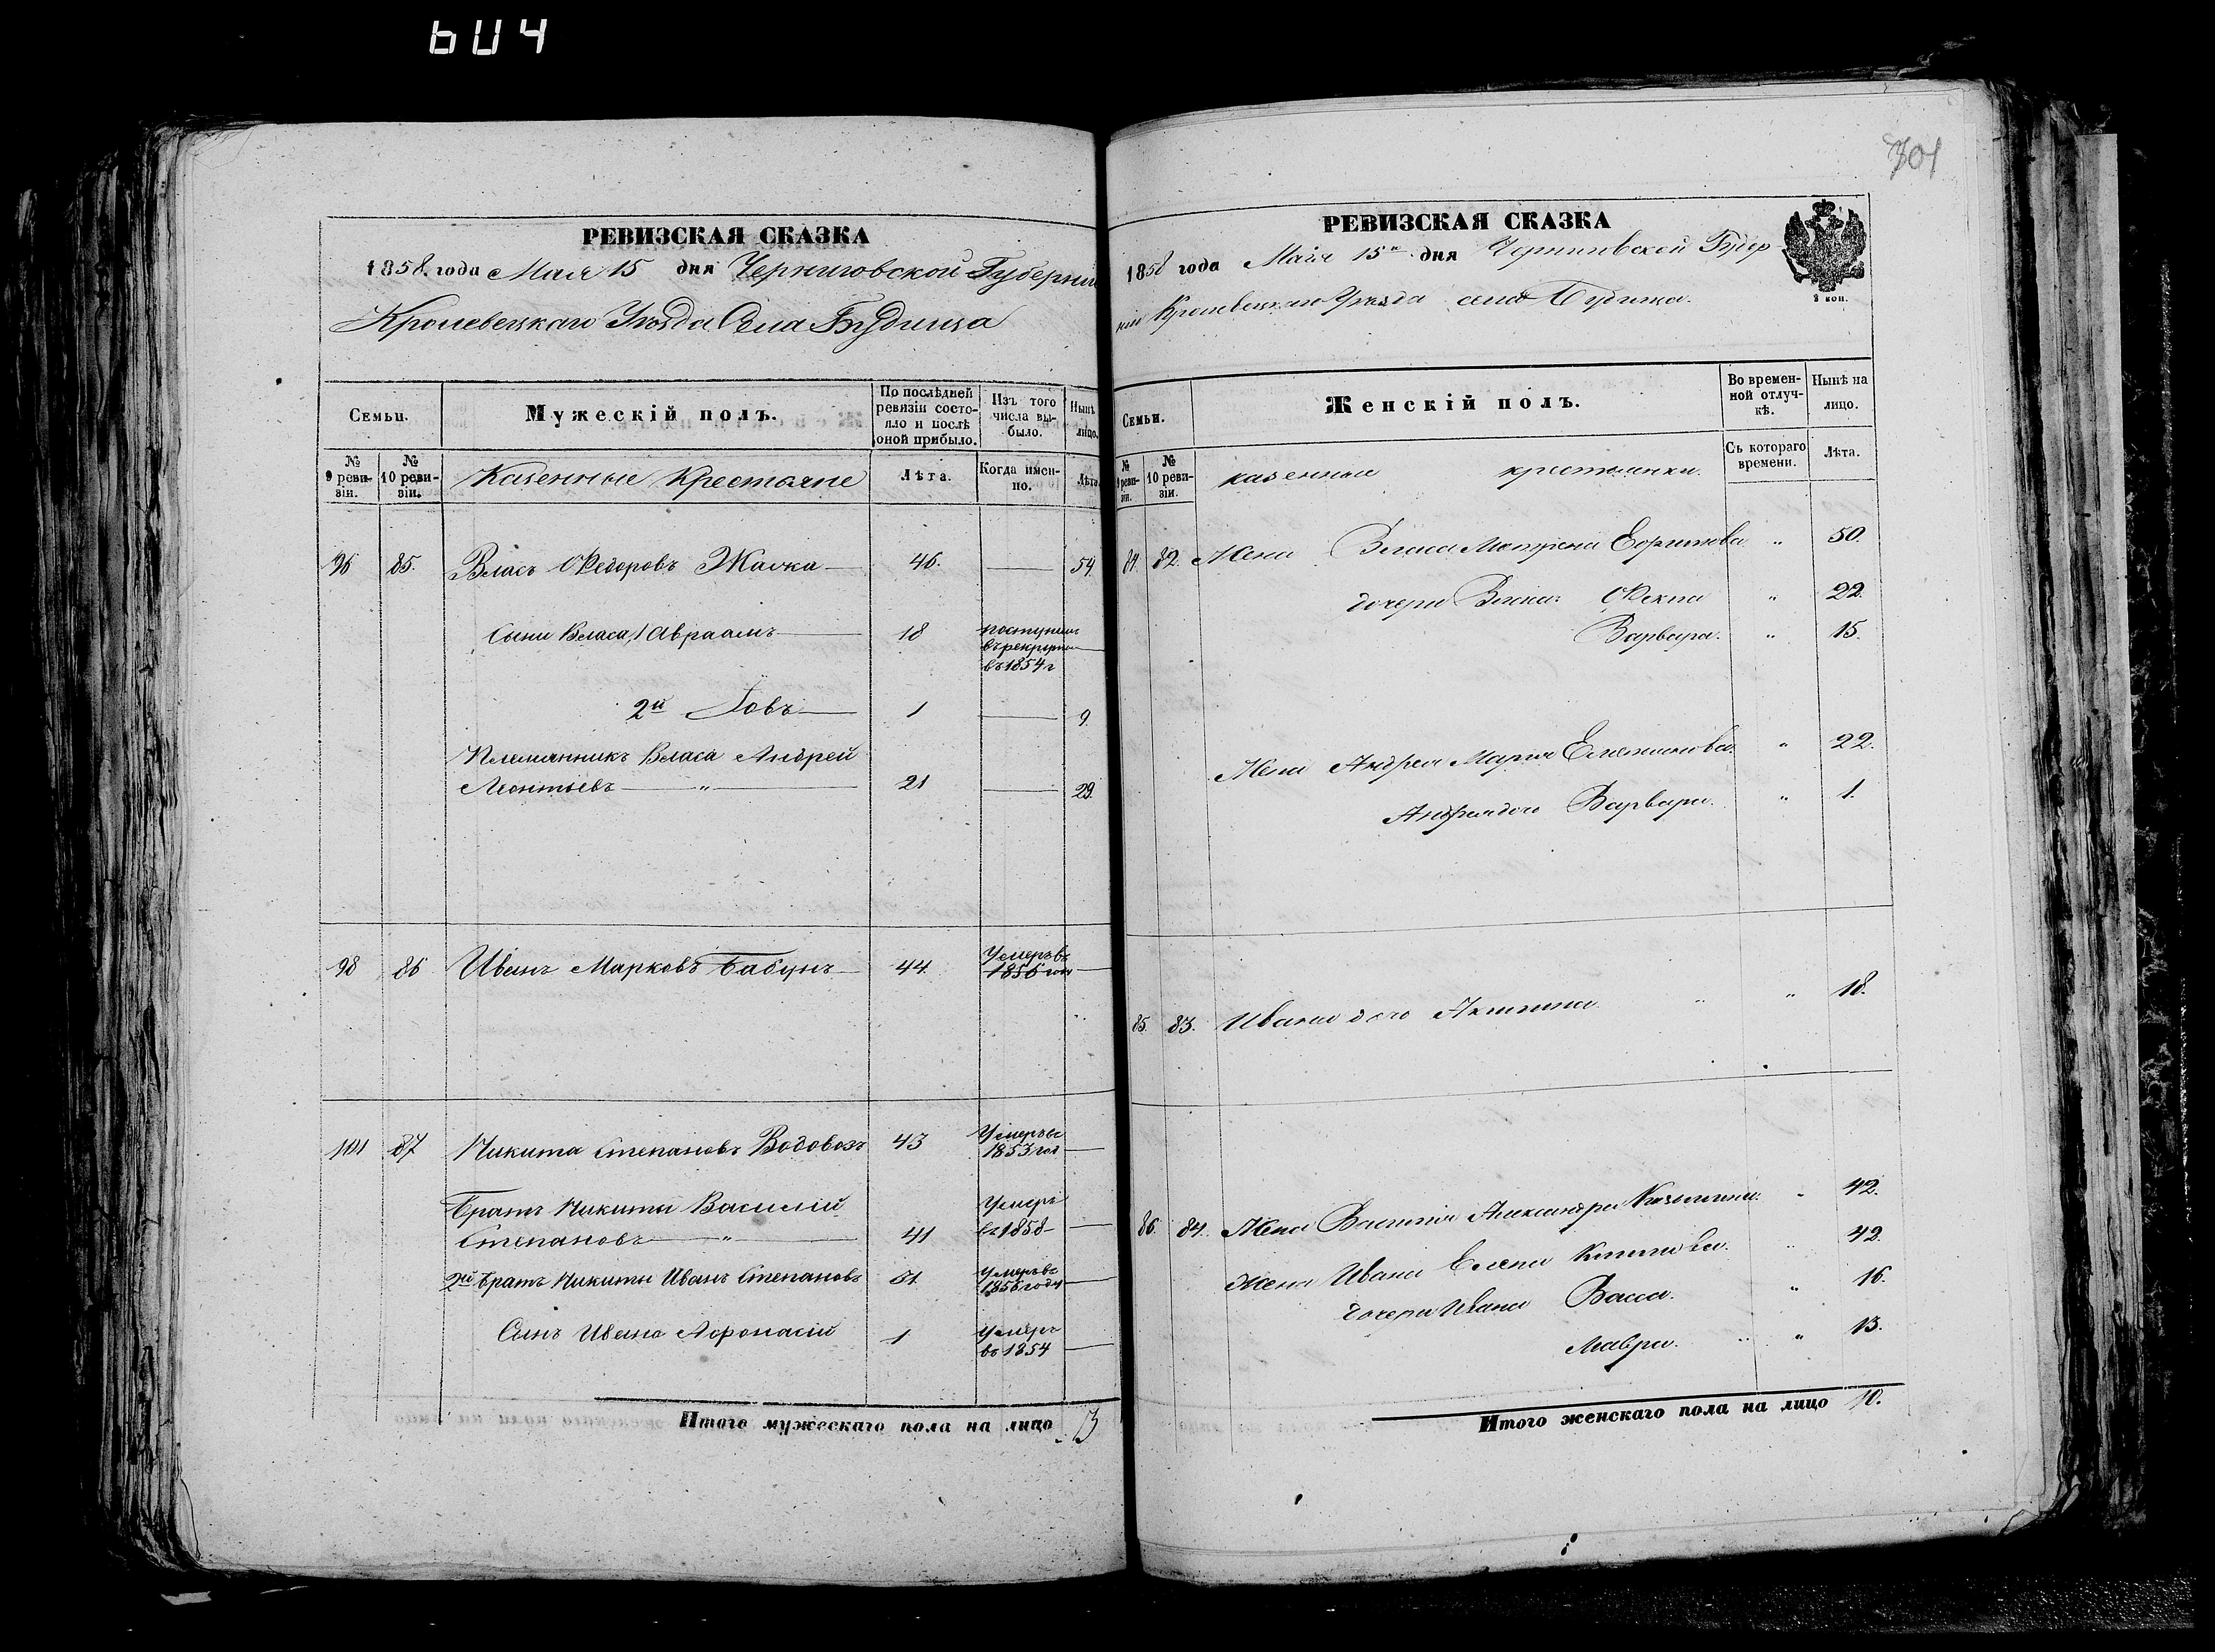 604
РЕВИЗСКАЯ СКАЗКА
1858. года Мая 15 дня Черниговской Губерніи
Кролевецкаго Уѣзда Села Будища
Семьи.
Мужескій полъ.
По послѣдней ревизіи состояло и послѣ оной прибыло.
Изъ того числа выбыло.
Нынѣ лицо.
№ 9 ревизіи.
№ 10 ревизіи.
Казенные Крестьяне
Лѣта.
Когда именно.
Лѣта.
96 85. Власъ Ѳедоровъ Жалка 46. 54.
Сыни Власа, 1 Авраамъ 18 поступилъ въ рекруты въ 1854 г
2й Іовъ 1 9.
Племянникъ Власа Андрей
Леонтьевъ " 21 29.
98 86 Иванъ Марковъ Бабунъ 44. Умеръ въ 1856 году
101 87 Никита Степановъ Водовозъ 43 Умеръ въ 1853 год
Братъ Никиты Василій
Степановъ " 41 Умеръ въ 1858
2й братъ Никиты Иванъ Степановъ 31 Умеръ въ 1856 году
Сынъ Ивана Афонасій 1 Умеръ въ 1854
Итого мужескаго пола на лицо 3
701
РЕВИЗСКАЯ СКАЗКА
1858 года Мая 15го дня Черниговской Губер
ніи Кролевецкаго Уѣзда села Будища.
2 коп.
Семьи.
Женскій полъ.
Во временной отлучкѣ.
Нынѣ на лицо.
№ 9 ревизіи.
№ 10 ревизіи.
казенные крестьянки.
Съ котораго времени.
Лѣта.
84. 82. Жена Власа Мотрена Ефимова " 50.
дочери Власа: Ѳекла " 22.
Варвара. " 15.
Жена Андрея Марья " 22.
Андрея дочь Варвара. " 1.
85. 83. Ивана дочь Акилина " " 18.
86. 84. Жена Василія Александра " 42.
Жена Ивана Елена " 42.
дочери Ивана Васса. " 16.
Мавра. " " 13.
Итого женскаго пола на лицо 10.